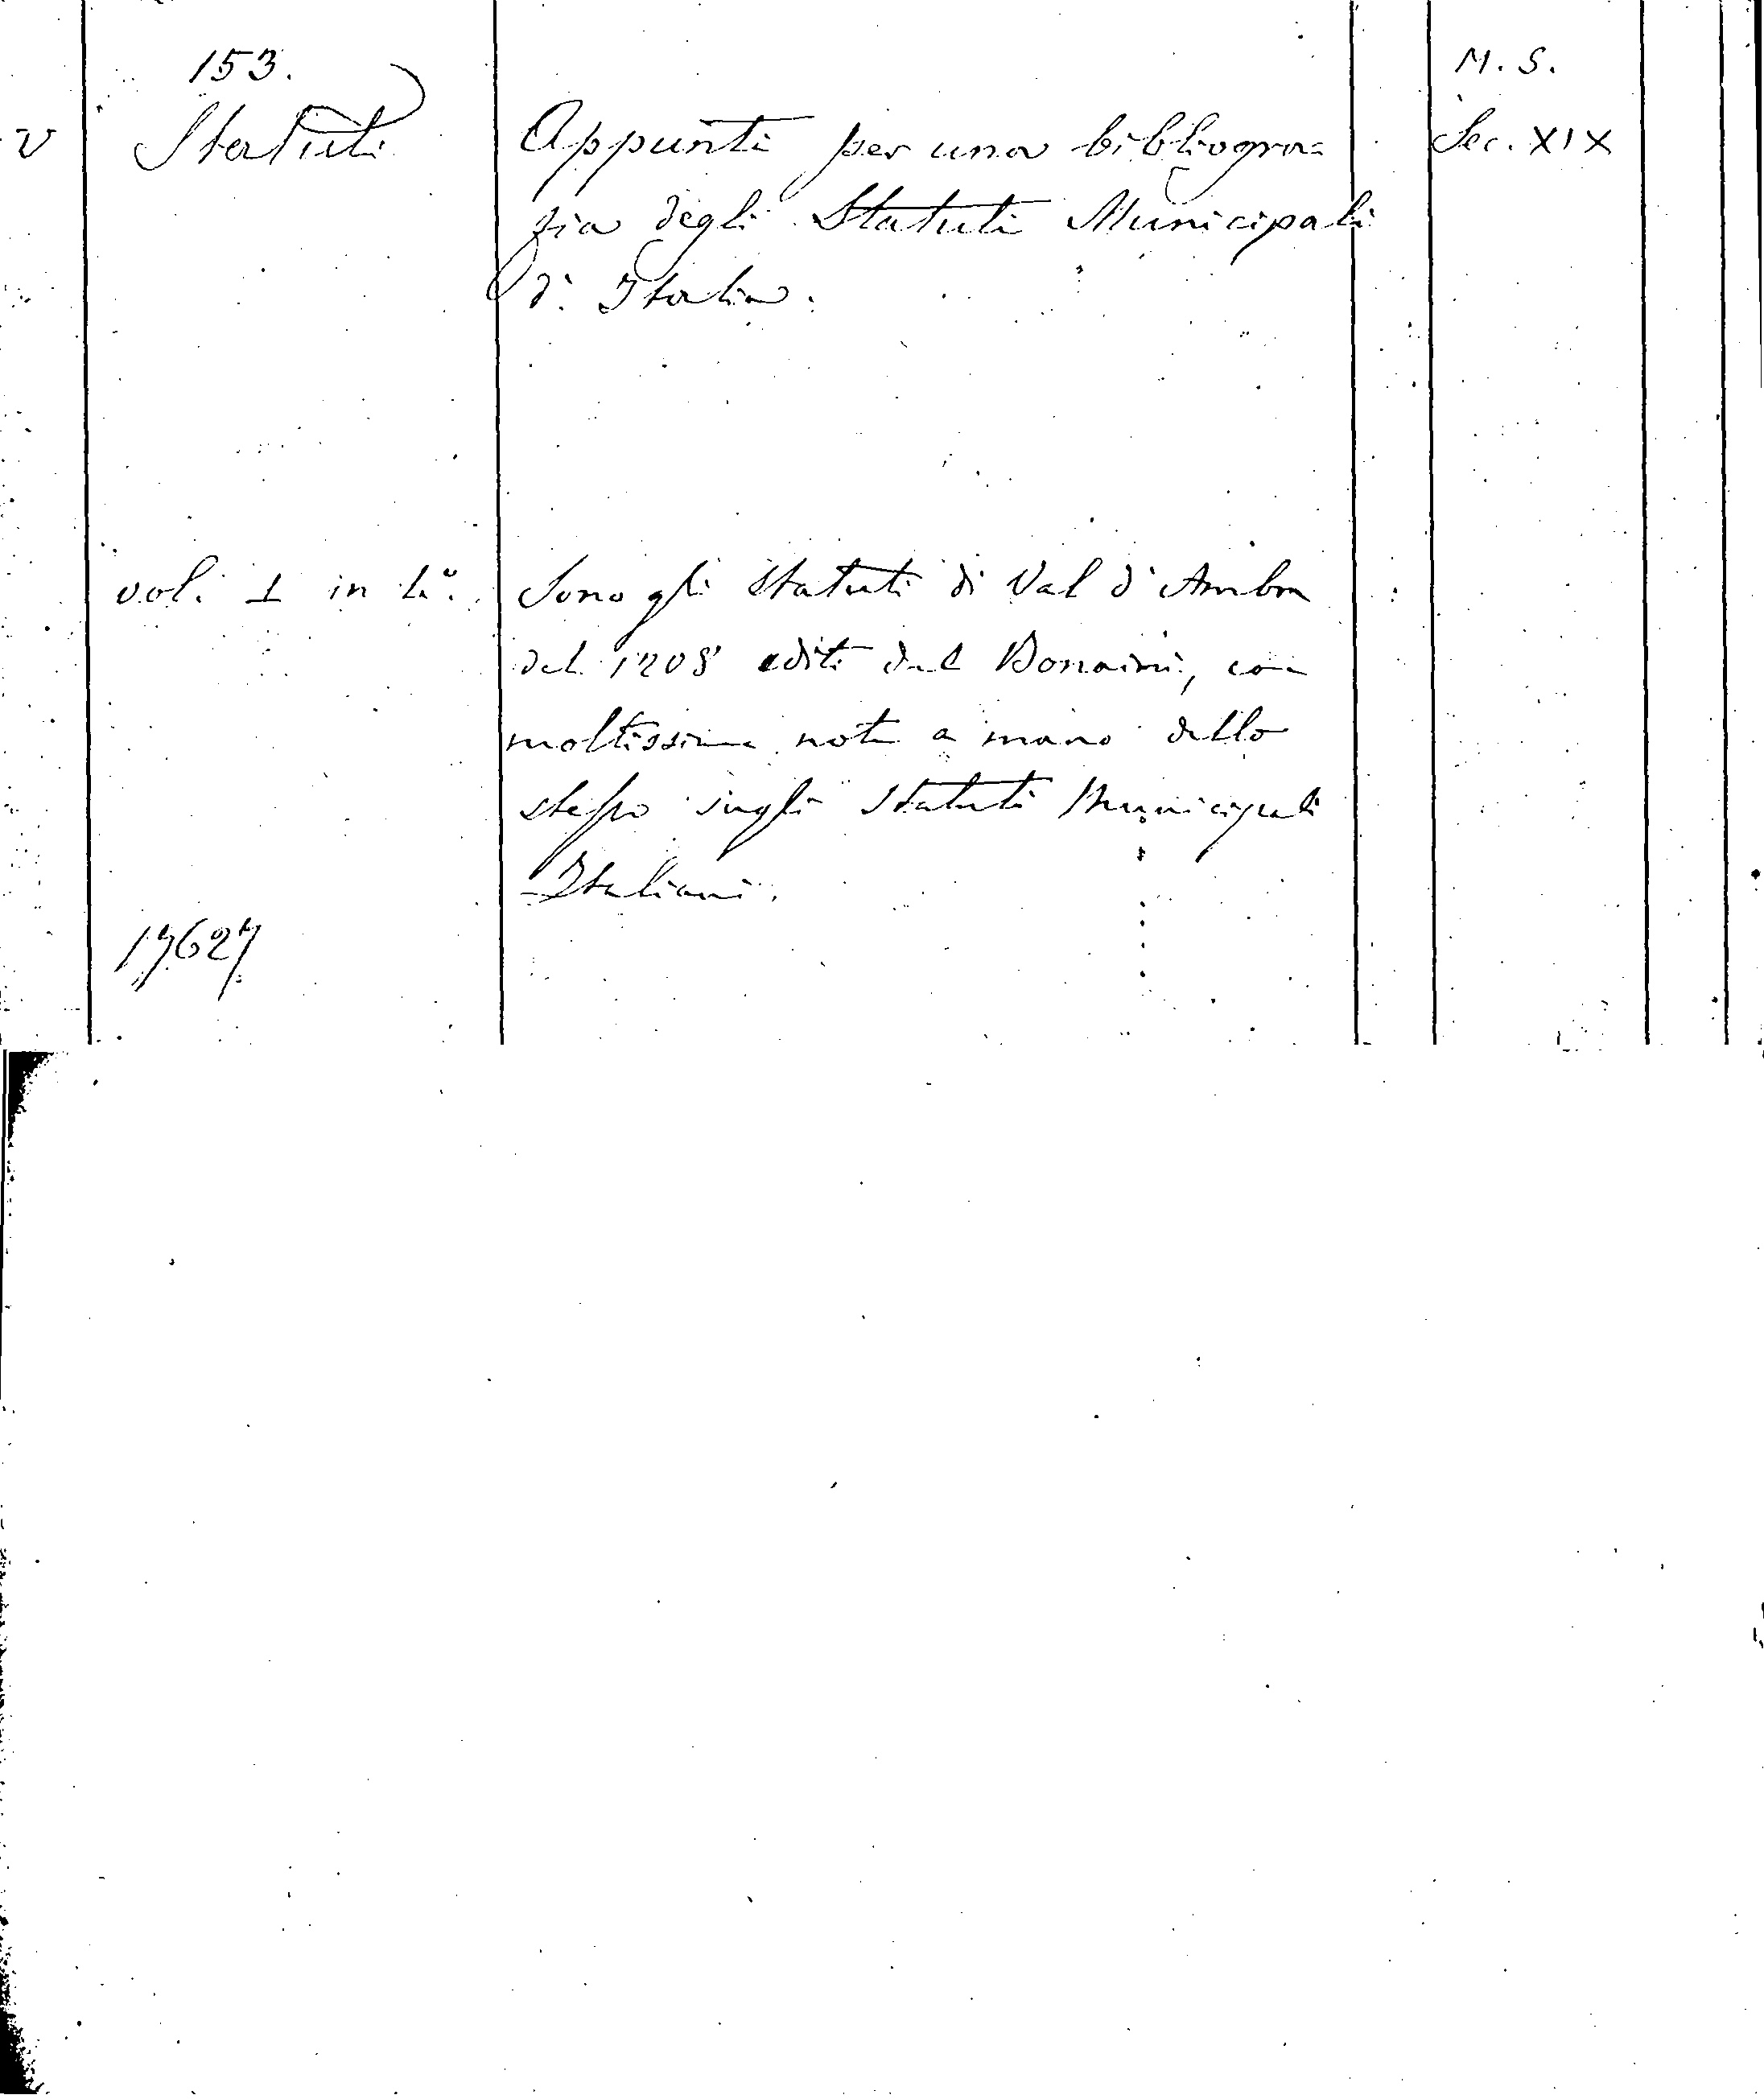 153.
M. S.
V
Statuti
Appunti per una bibliogra=
Sec. XIX
fia degli Statuti Municipali
d'Italia.
vol. 1 in 4º.
Sono gli Statuti di Val d'Ambra
del 1208 editi dal Bonaini, con
moltissime note a mano dello
stesso sugli Statuti Municipali
Italiani.
17627